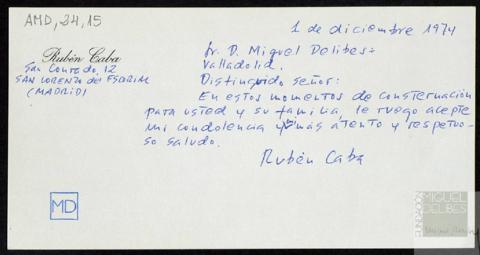 AMD, 34, 15
1 de diciembre 1974
Rubén Caba
San Conrado, 12
SAN LORENZO DEL ESCORIAL
(MADRID)
Sr. D. Miguel Delibes.
Valladolid.
Distinguido señor:
En estos momentos de consternación
para usted y su familia, le ruego acepte
mi condolencia y mi más atento y respetuo-
so saludo.
Rubén Caba
MD
MIGUEL
DELIBES